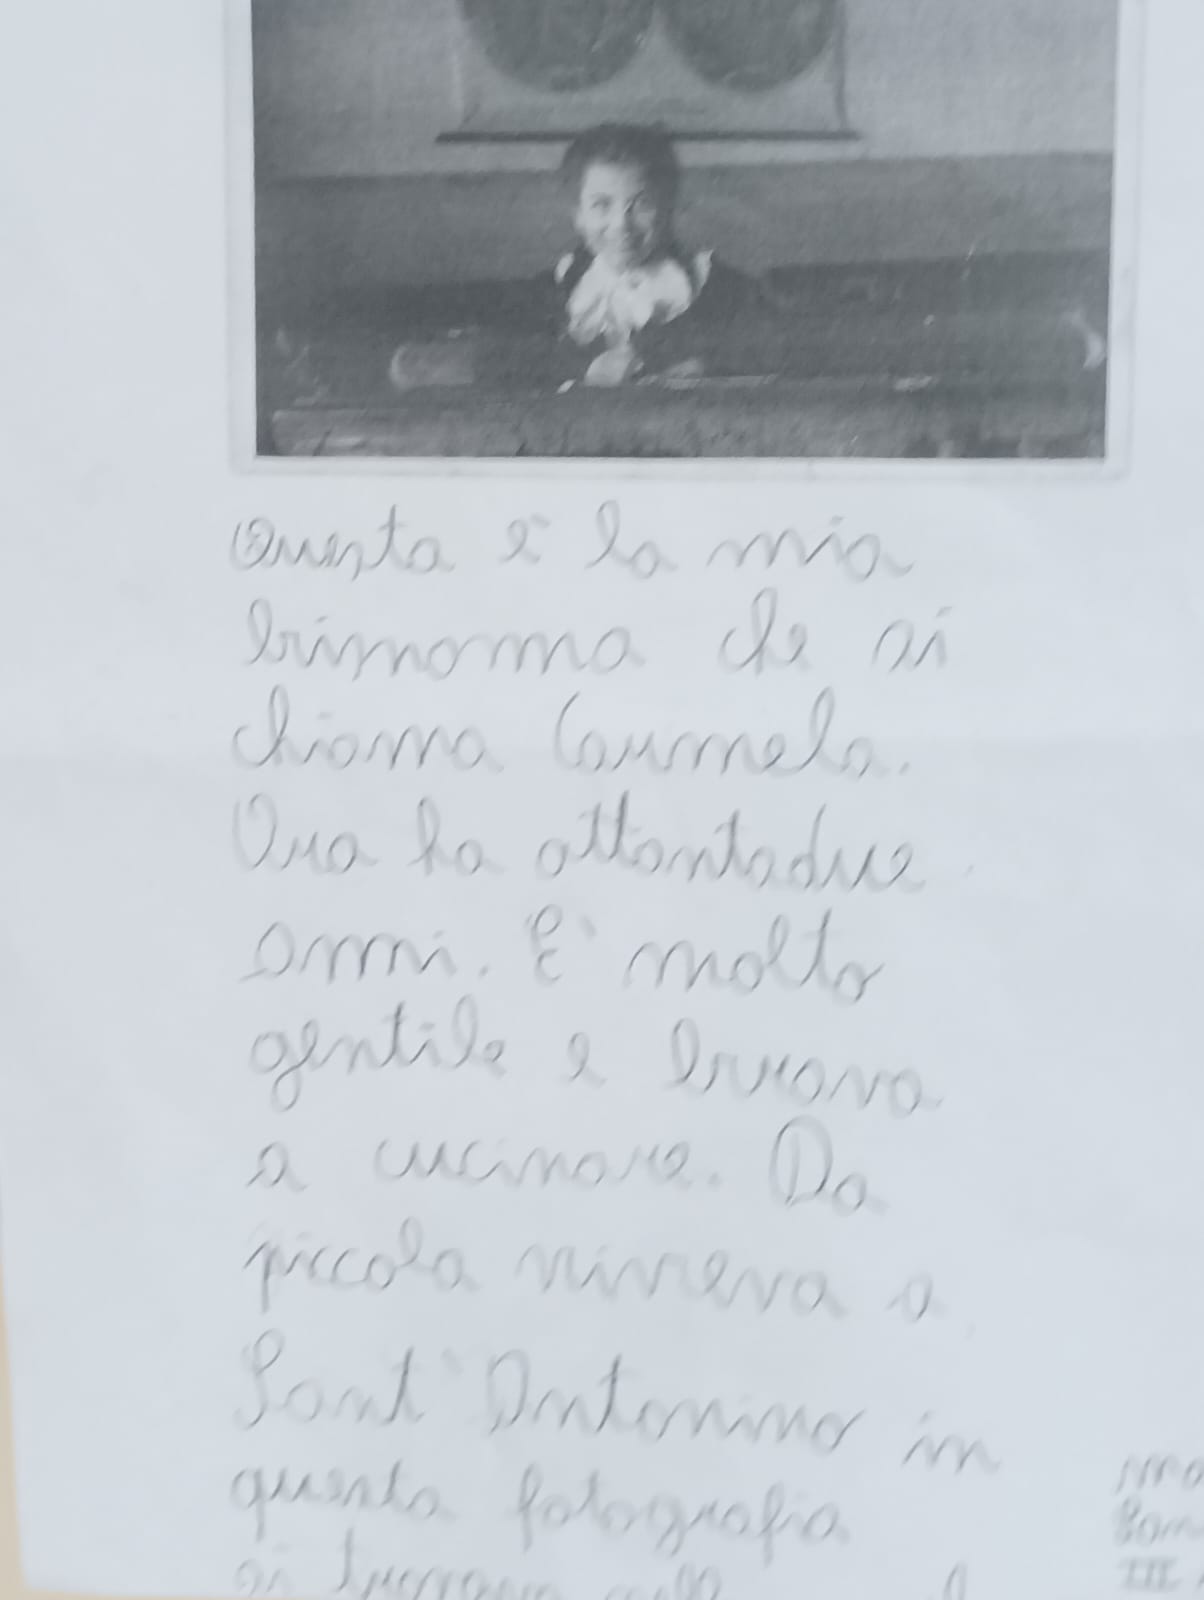 Questa è la mia
bisnonna che si
chiama Carmela.
Ora ha ottantadue
anni. È molto
gentile e brava
a cucinare. Da
piccola viveva a
Sant'Antonino in
questa fotografia
si trovava
III